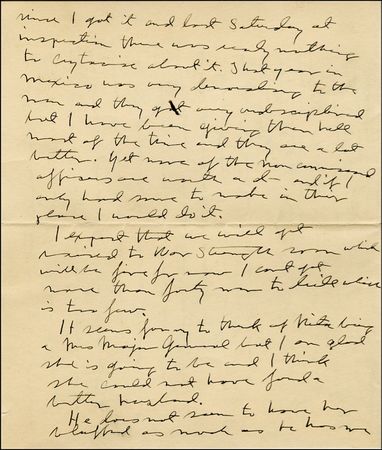 since I got it and last Saturday at
inspection there was really nothing
to criticise about it. That year in
Mexico was very demoralizing to the
men and they got very undisciplined
but I have been giving them hell
most of the time and they are a lot
better. Yet none of the non commissioned
officers are worth a d— and if I
only had some to make in their
places I would do it.
I expect that we will get
raised to War Strength soon which
will be fine for now I cant get
more than forty men to drill which
is too few.
It seems funny to think of Nita being
a Mrs Major General but I am glad
she is going to be and I think
she could not have found a
better husband.
He does not seem to have her
bluffed as much as he has me